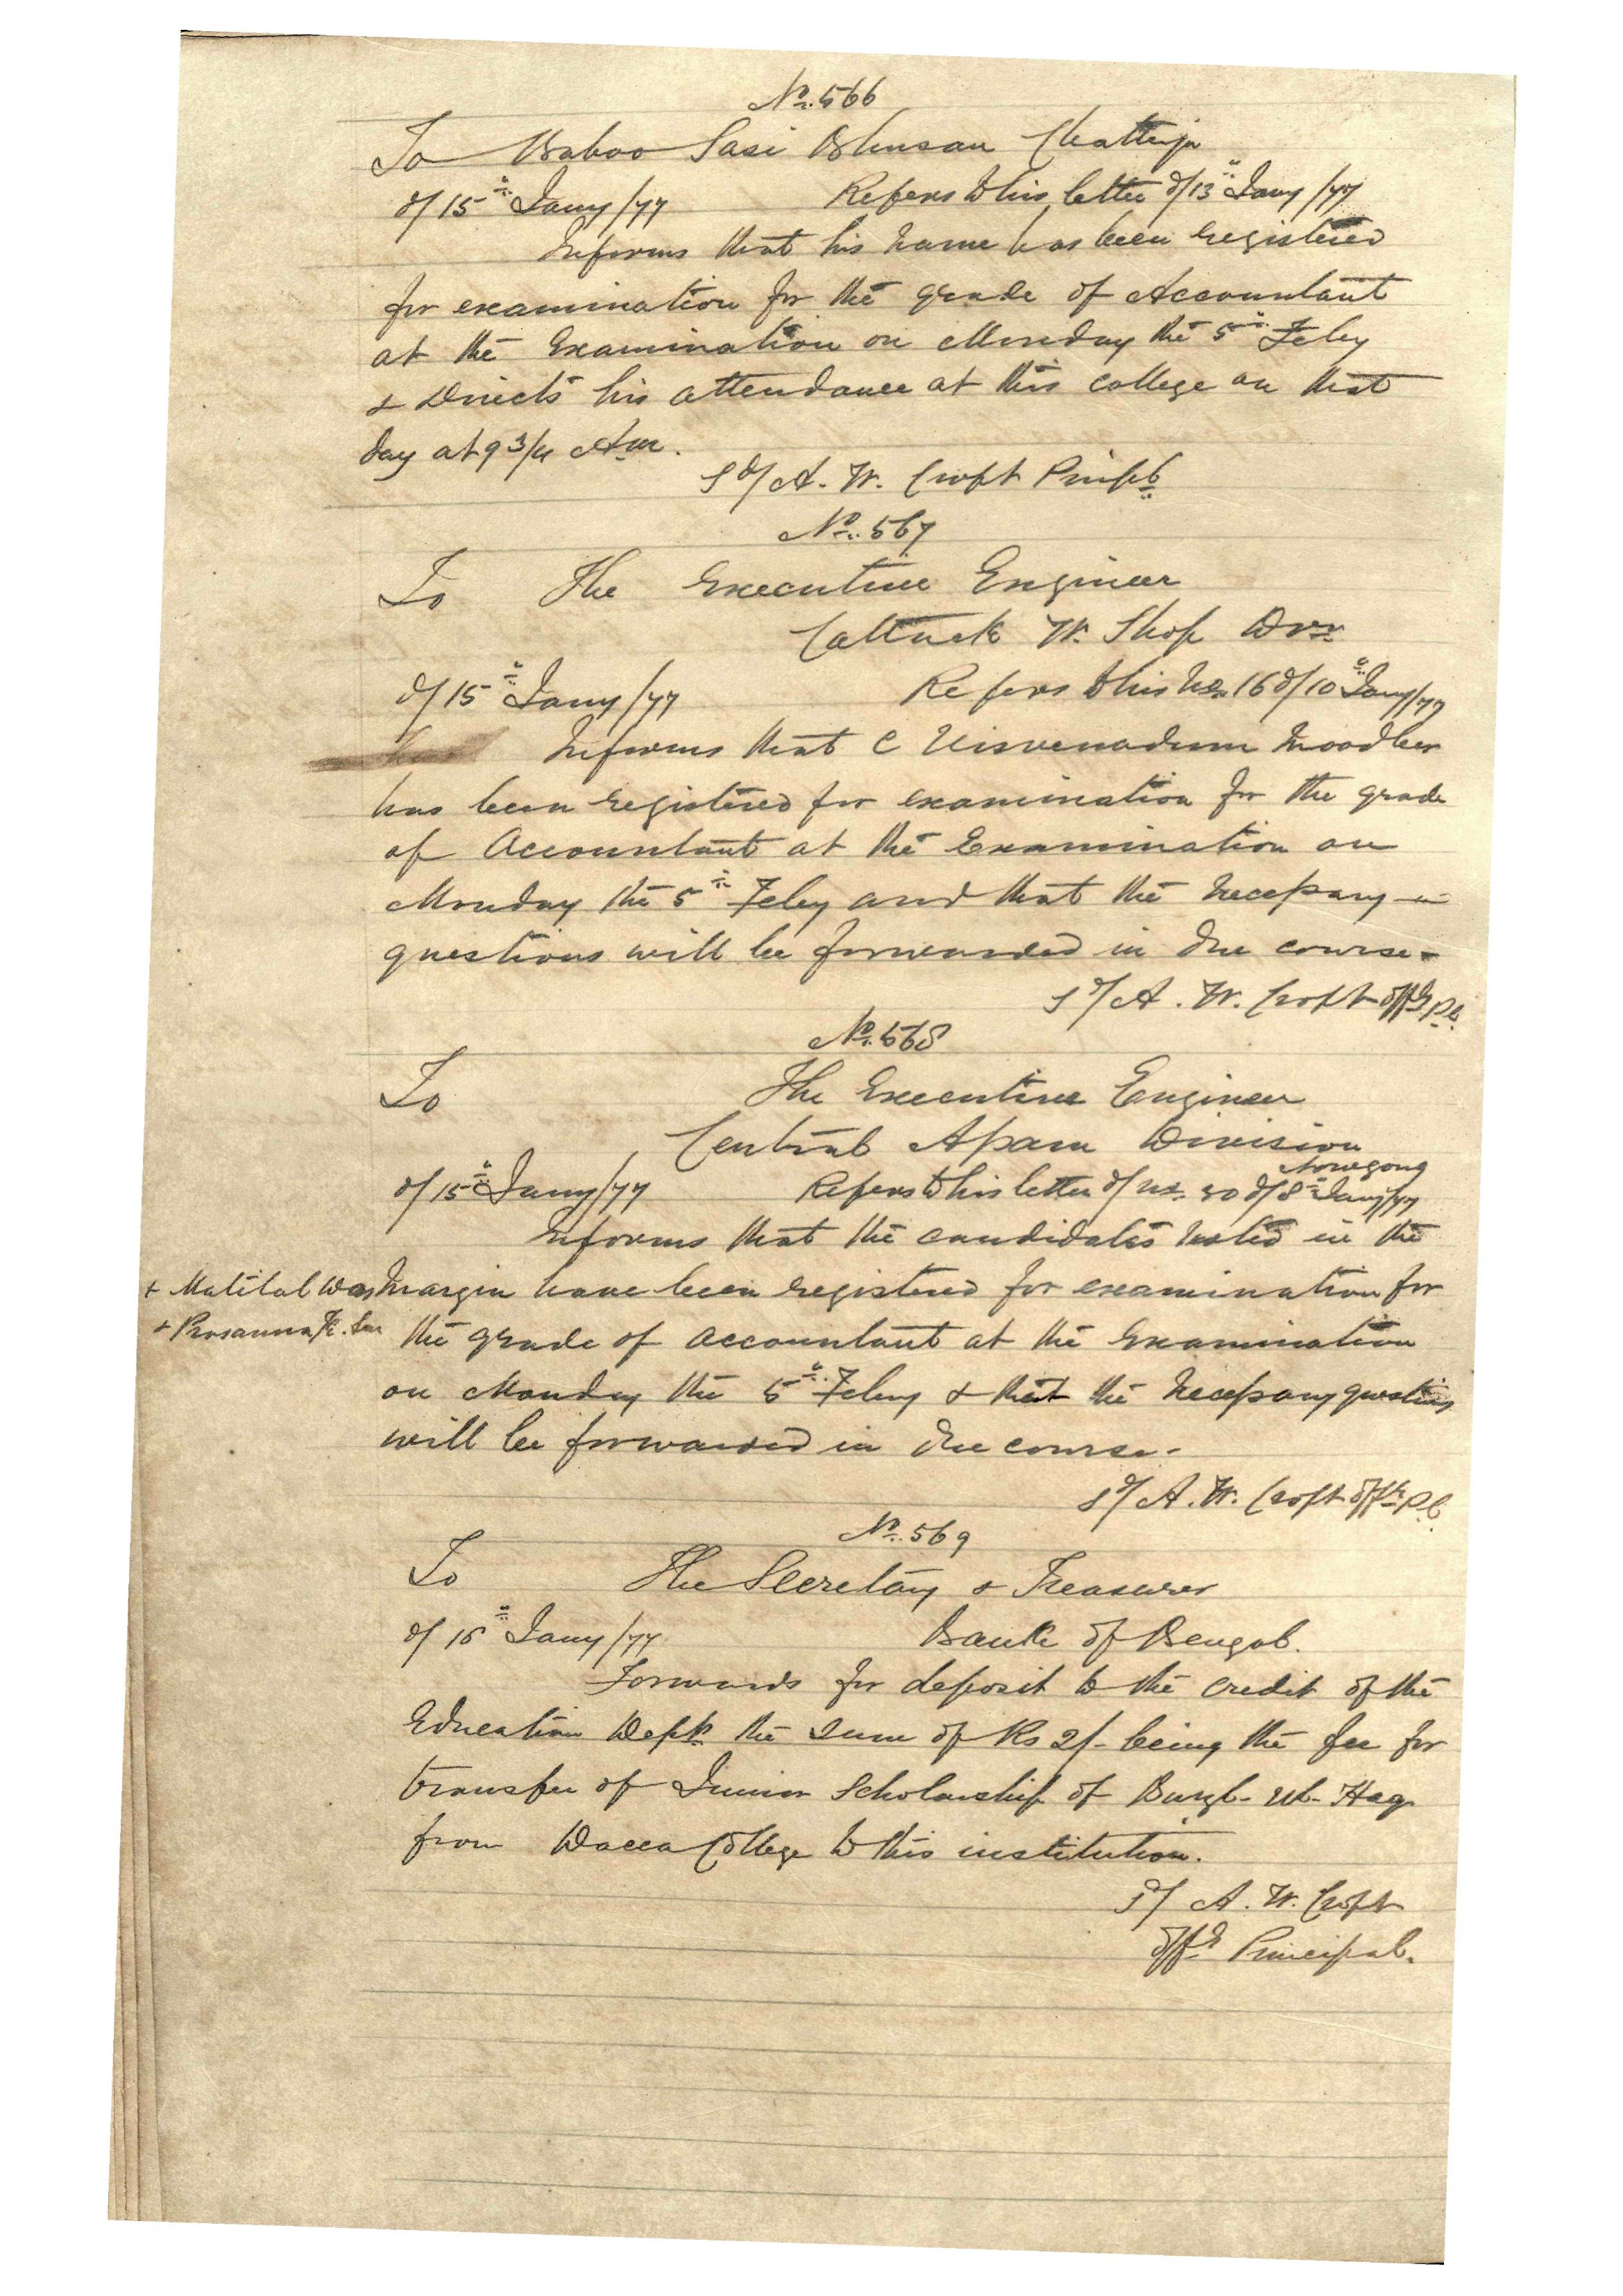 No. 566
To Baboo Sasi Bhusan Chatterja
d/ 15th Jany /77 Refers to his letter d/ 13th Jany /77
Informs that his name has been registered
for examination for the grade of Accountant
at the Examination on Monday the 5th Feby
& directs his attendance at this college on that
day at 9 3/4 Am.
Sd/ A. W. Croft Prinpl
No. 567
To The Executive Engineer
Cattack W. Shop Divn
d/ 15th Jany /77 Refers to his No. 16 d/ 10th Jany/77
Informs that C
has been registered for examination for the grade
of Accountant at the Examination on
Monday the 5th Feby and that the necessary
questions will be forwarded in due course.
Sd/ A. W. Croft Offg Pl.
No. 568
To The Executive Engineer
Central Assam Division
Nowgong
d/ 15th Jany/77 Refers to his letter d/ No. 30 d/ 8th Jany/77
Informs that the candidates noted in the
+ Matilal Das margin have been registered for examination for
+ Prosanna K. Sen the grade of accountant at the Examination
on Monday the 5th Feby & that the necessary questions
will be forwarded in due course.
Sd/ A. W. Croft Offg Pl.
No. 569
To The Secretary & Treasurer
d/ 15th Jany /77 Bank of Bengal.
Forwards for deposit to the credit of the
Education Dept. the sum of Rs 2/- being the fee for
transfer of Junior Scholarship of
from Dacca College to this institution.
Sd/ A. W. Croft
Offg Principal.